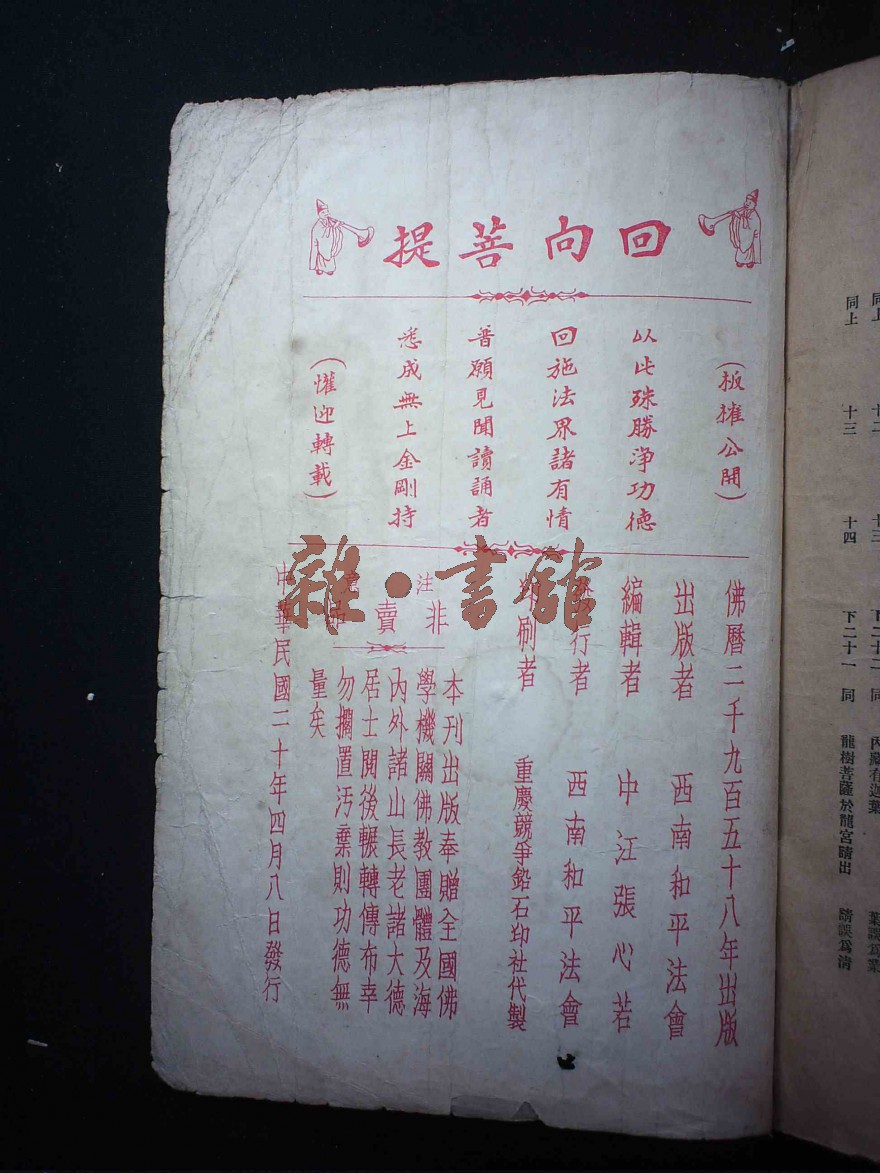 回向菩提
（板權公開）
以此殊勝淨功德
回施法界諸有情
普願見聞讀誦者
悉成無上金剛持
（懽迎轉載）
佛曆二千九百五十八年出版
出版者 西南和平法會
編輯者 中江張心若
行者 西南和平法會
刷者 重慶競爭鉛石印社代製
非賣
注
本刊出版奉贈全國佛
學機關佛教團體及海
內外諸山長老諸大德
居士閱後輾轉傳布幸
勿擱置汚棄則功德無
量矣
中華民國二十年四月八日發行
雜·書館
同上 十二 十三 下二十二 同 內藏有迦葉 葉誤爲業
同上 十三 十四 下二十一 同 龍樹菩薩於龍宮睛出 睛誤爲清